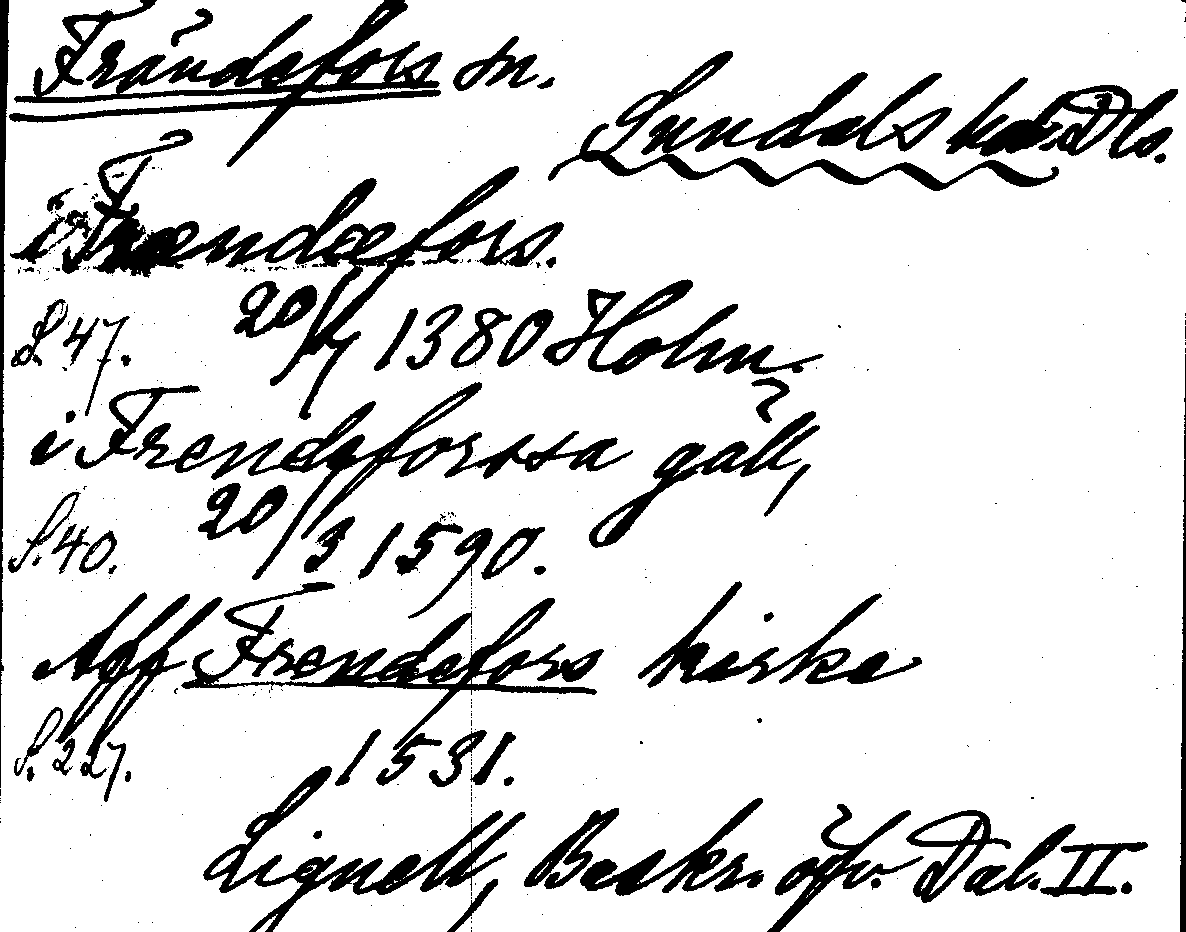 Frändefors sn.
Sundals hd. Dls.
i Frændæfors.
S. 47. 20/7 1380 Holm.
i Frendeforssa gäll,
S. 40. 20/3 1590.
Aff Frendefors kirke
S. 227. 1531.
Lignell, Beskr. öfv. Dal. II.